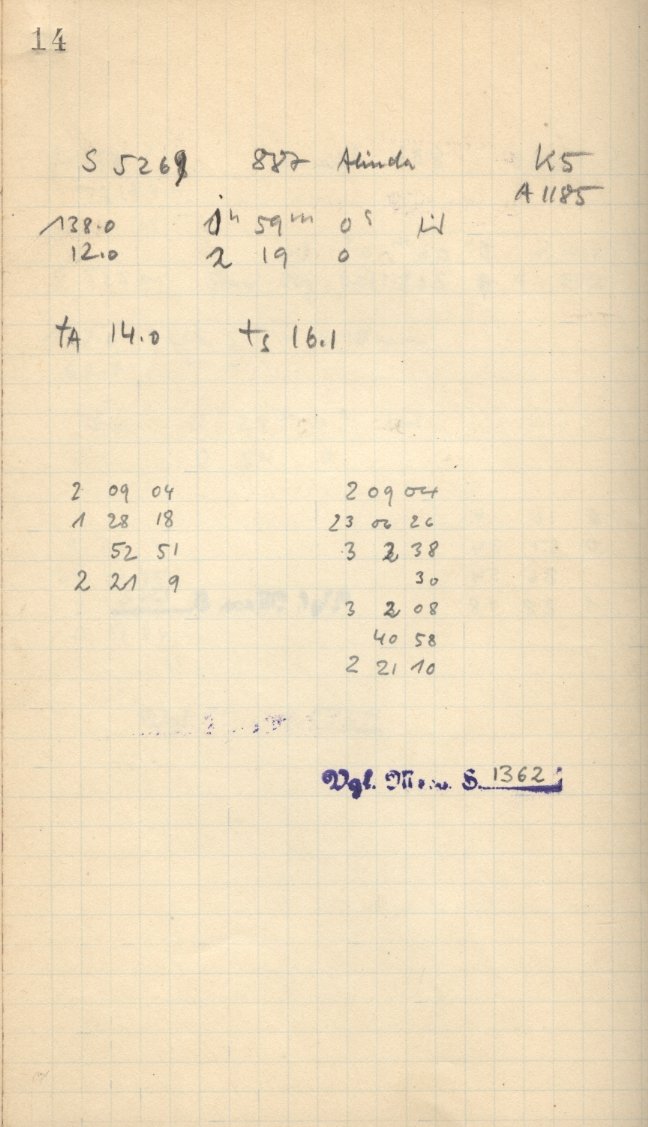 14
S 5269 887 Alinda K5
A 1185
138.0 1h 59m 0s
12.0 2 19 0
tA 14.0 ts 16.1
2 09 04
1 28 18
52 51
2 21 9
2 09 04
23 06 26
3 2 38
30
3 2 08
40 58
2 21 10
Vgl. S. 1362